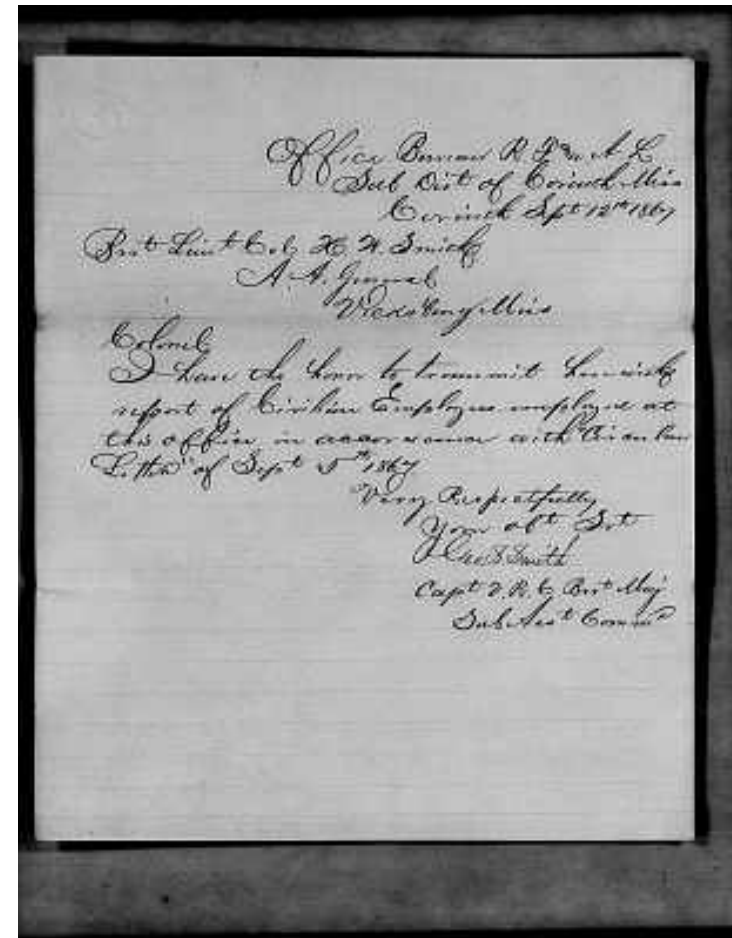 Office Bureau R. F. & A. L.
Sub Dist of Corinth Miss
Corinth Sept 12th 1867
Bvt Lieut Col H. W. Smith
A. A. General
Vicksburg Miss
Colonel
I have the honor to transmit herewith
report of Civilian Employees employed at
this office in accordance with Circular
Letter of Sept 5th 1867
Very Respectfully
Your obt Svt
Geo S Smith
Capt V. R. C. Bvt Maj
Sub Asst Commr